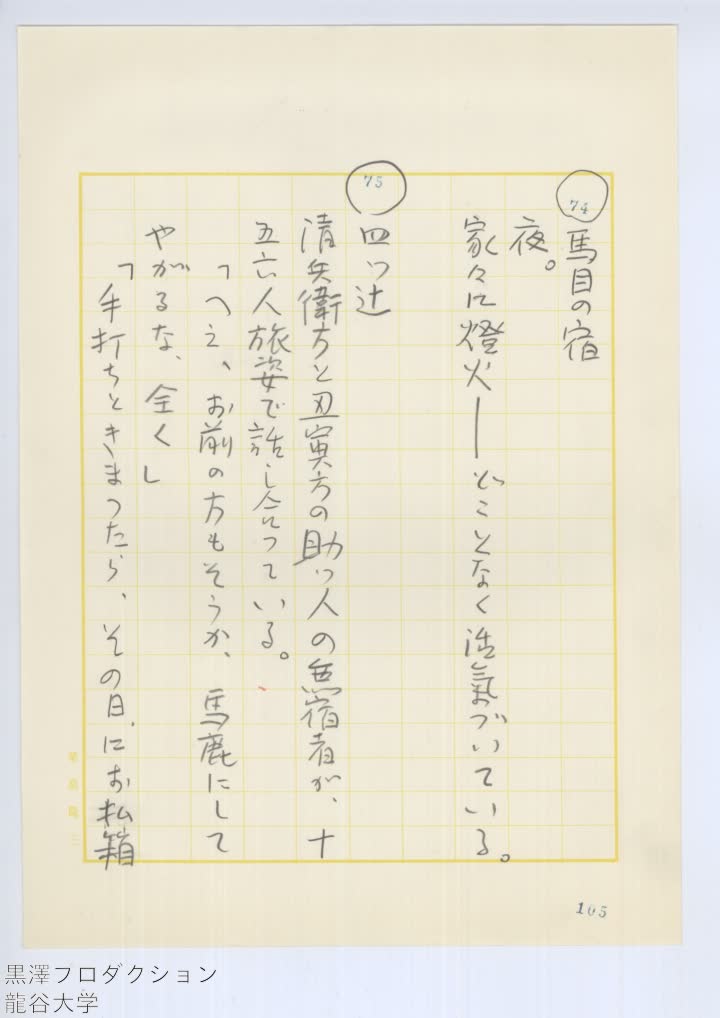 74
馬目の宿
夜。
家々に燈火──どことなく活氣づいている。
75
四ツ辻
清兵衛方と丑寅方の助ッ人の無宿者が、十
五六人旅姿で話し合つている。
「へえ、お前の方もそうか、馬鹿にして
やがるな、全く」
「手打ちときまつたら、その日にお払箱
105
黒澤プロダクション
龍谷大学